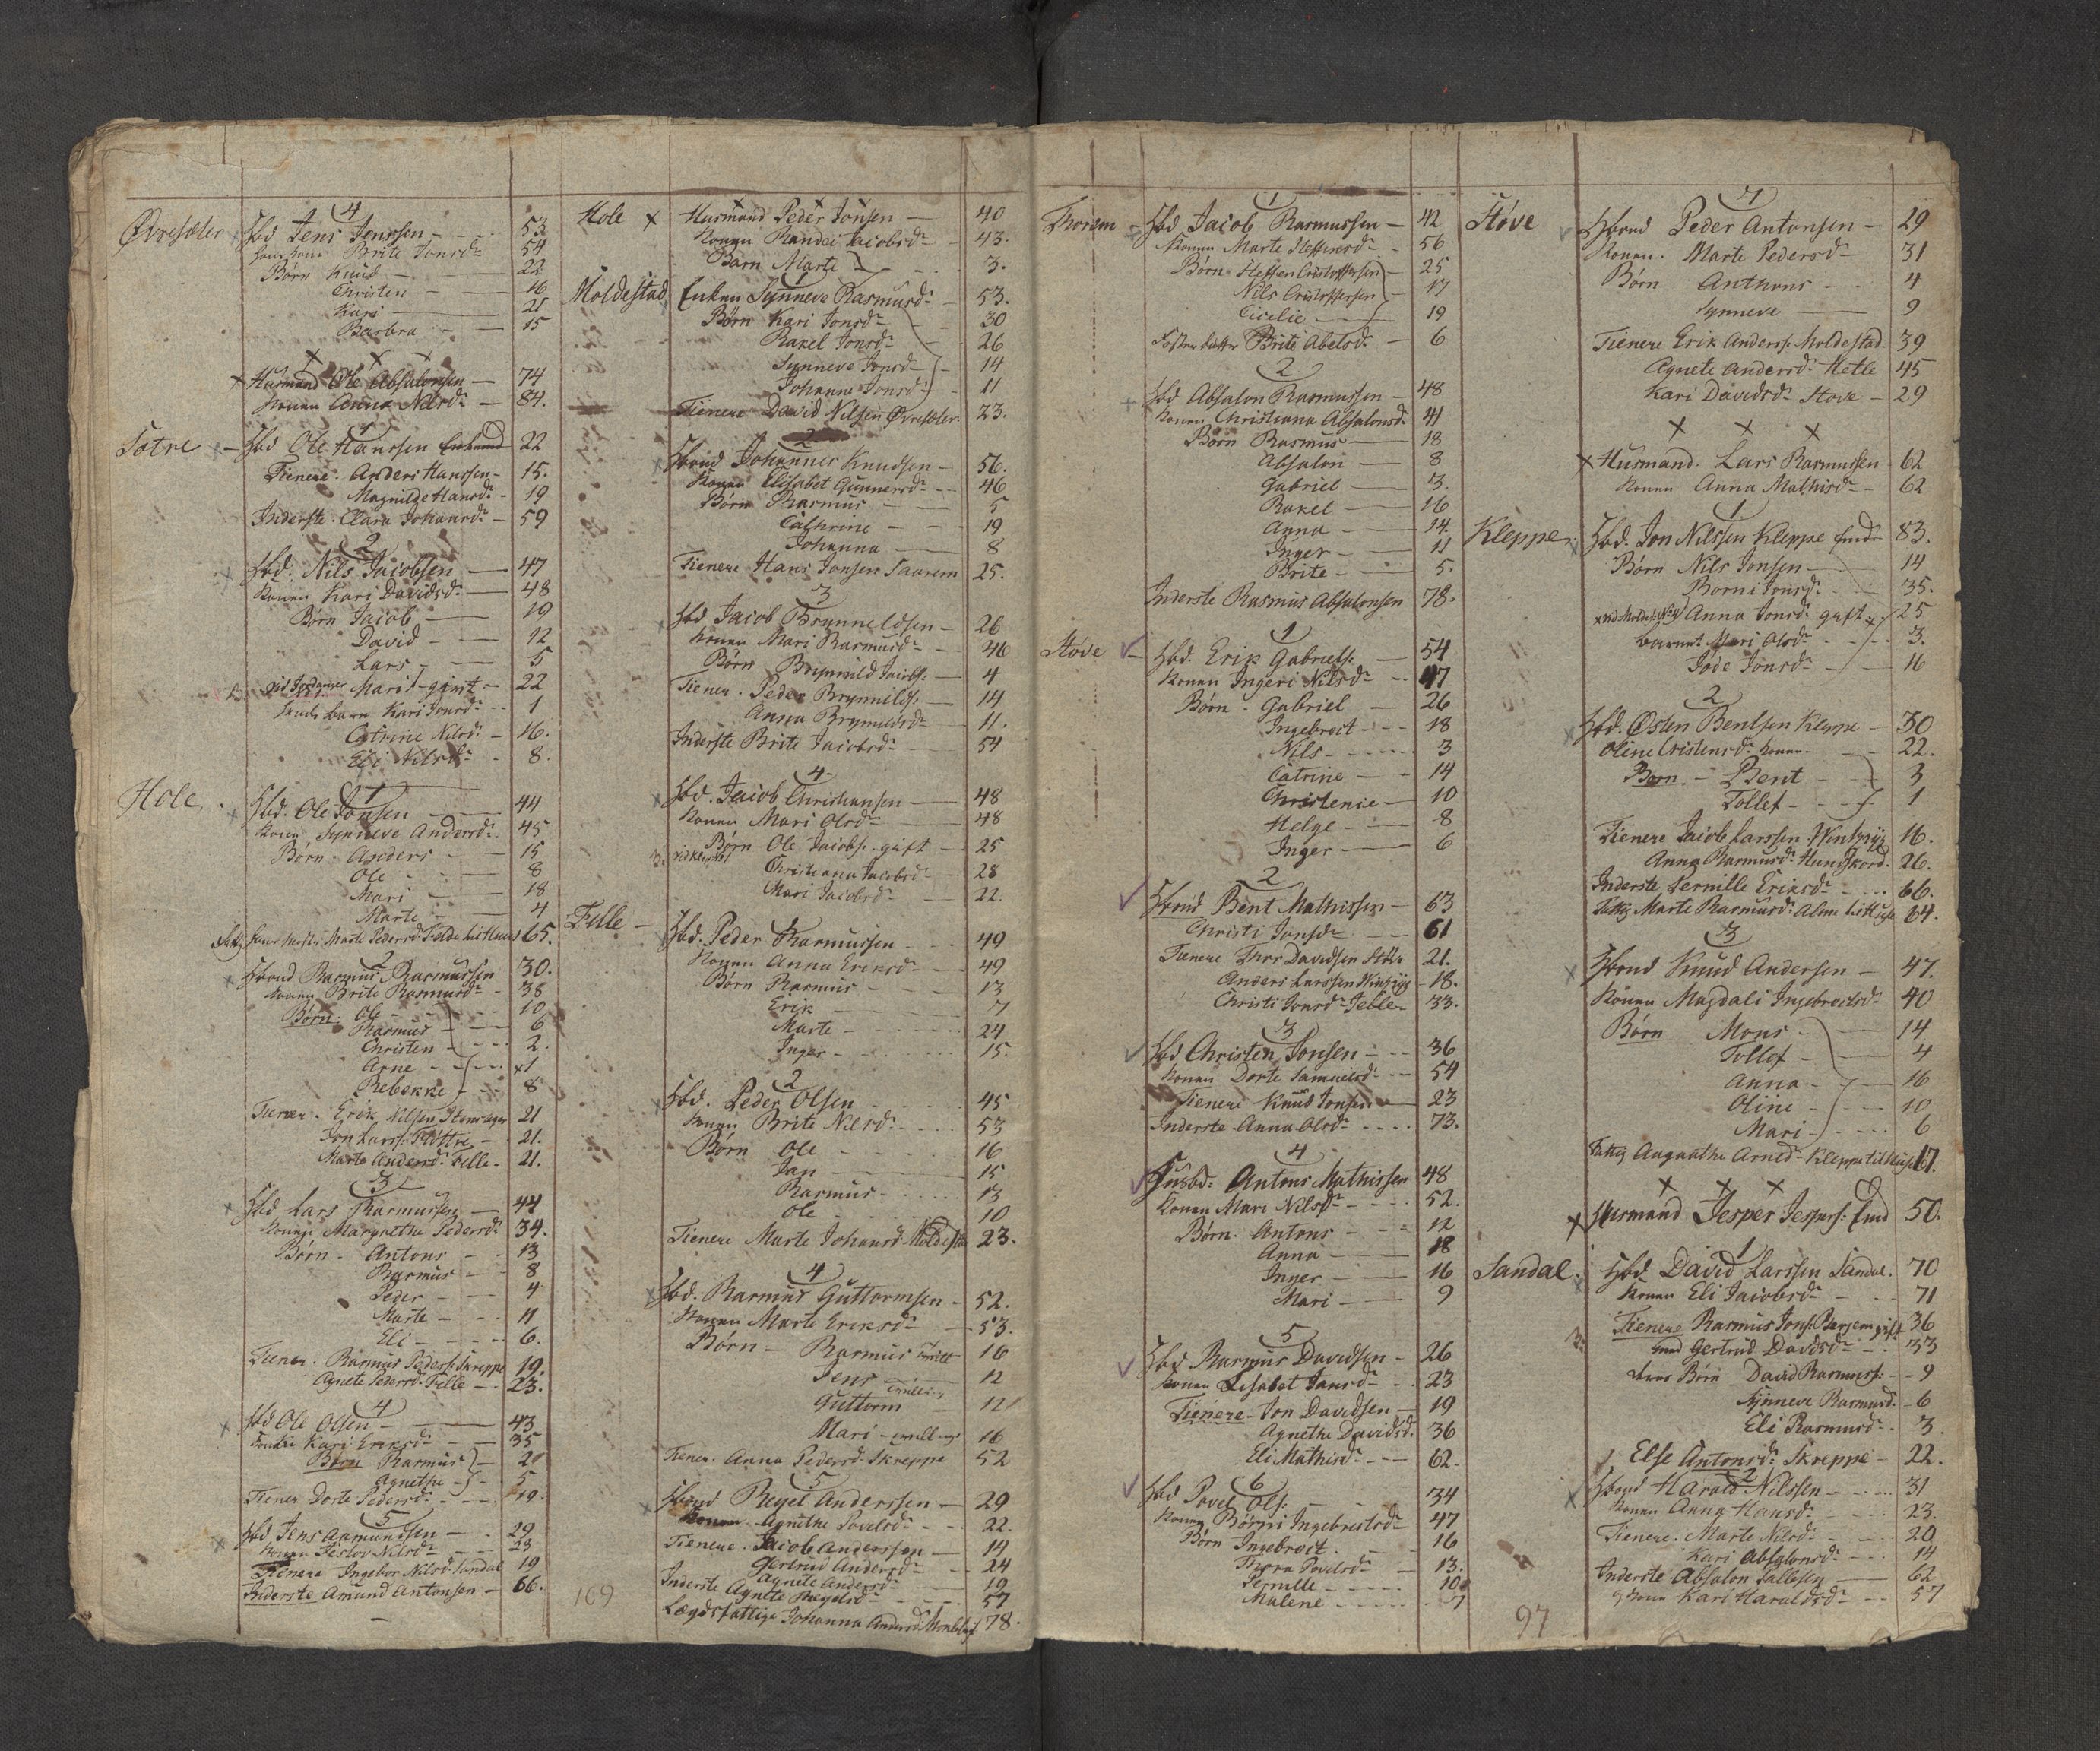 4
Øvresæter Hbd Jens Jenssen 53
Brite Jonsdr 54
Børn Knud 22
Christen 16
Kari 21
Barbra 15
x x x
x Husmand Ole Absalonsen 74
Konen Anna Nilsdr 84.
1
Totre Hbd Ole Hanssen Enkemand 22
Tienere Anders Hanssen 15.
Magnilde Hansdr 19
Inderste Clara Johansdr 59
2
Hbd. Nils Jacobsen 47
Konen Kari Davidsdr 48
Børn Jacob 19
David 12
Lars 5
Mari givt 22
hendes barn Kari Jonsdr 1
Catrine Nilsdr 16.
Eli Nilsdr 8.
1
Hole Hbd. Ole Jonsen 44
Konen Synneve Andersdr 45
Børn Anders 15
Ole 8
Mari 18
Marte 4
Marte Pedersdr 65.
2
x Hbond Rasmus Rasmussen 30.
Konen Brite Rasmusdr 38
Børn: Ole 10
Rasmus 6
Christen 2.
Arne x1
Rebekke 8
Tiener. Erik Nilsen 21
Jon Larss: 21.
Marte Andersdr Felle 21.
3
Hbd Lars Rasmussen 44
Konen Margrethe Pedersdr 34.
Børn Antons 13
Rasmus 8
Peder 4
Marte 11
Eli 6.
Tiener. Rasmus Peders: Skreppe 19.
Agnete Pedersdr Felle 23.
4
Hbd Ole Olsen 43
Kari Eriksdr 35
Børn Rasmus 2
Agnethe 5
Tiener Dorte Pedersdr 19.
5
Hbd Jens Aamundsen 29
Konen Nilsdr 23
Tienere Ingebor Nilsdr Sandal 19
Inderste Amund Antonsen 66.
Hole x Husmand Peder Jonsen 40
Konen Randei Jacobsdr 43.
Barn Marte 3.
1
Moldestad Enken Synneve Rasmusdr 53.
Børn Kari Jonsdr 30
Rakel Jonsdr 26
Synneve Jonsdr 14
Johanna Jonsdr 11
Tienere David Nilsen Øvresæter 23.
2
Hbond Johannes Knudsen 56.
Konen Elisabet Gunnersdr 46
Børn Rasmus 5
Cathrine 19
Johanna 8
Tienere Hans Jonsen Taarem 25.
3
Hbd Jacob Brynneldsen 26
Konen Mari Rasmusdr 46
Børn Brynnild Jacobs: 4
Tiener. Peder Brynnilds: 14
Anna Brynnildsdr 11.
Inderste Brite Jacobsdr 54
4
Hbd. Jacob Christiansen 48
Konen Mari Olsdr 48
Børn Ole Jacobs: gift 25
Christiana Jacobsdr 28
Mari Jacobsdr 22.
1
Felle Hbd. Peder Rasmussen 49
Konen Anna Eriksdr 49
Børn Rasmus 13
Erik 7
Marte 24
Inger 15.
2
Hbd. Peder Olsen 45
Konen Brite Nilsdr 53
Børn Ole 16
Jan 15
Rasmus 13
Ole 10
Tienere Marte Johansdr Moldesta 23.
4
Hbd. Rasmus Guttormsen 52.
Konen Marte Eriksdr 53.
Børn Rasmus 16
Jens 12
Guttorm 12
Mari 16
Tiener. Anna Pedersdr Skreppe 52
5
Hbond Reyel Anderssen 29
Konen Agnethe Povelsdr 22.
Tienere. Jacob Anderssen 14
Gertrud Andersdr 24
Agnete Andersdr 19
Inderste Agnete Rasmusdr 57
Lægdsfattige Johanna Andersdr 78.
109
1
Thorem Hbd Jacob Rasmussen 42
Konen Marte Steffensdr 56
Børn Steffen Cristoffersen 25
Nils Cristoffersen 17
Cicilie 19
Foster datter Brite Abelsdr 6
2
Hbd Absalon Rasmussen 48
Konen Christiana Absalonsdr 41
Børn Rasmus 18
Absalon 8
Gabriel 3.
Rakel 16
Anna 14.
Inger 11
Brite 5.
Inderste Rasmus Absalonsen 78.
1
Støve Hbd. Erik Gabriels: 54
Konen Ingeri Nilsdr 47
Børn Gabriel 26
Ingebroct 18
Nils 3
Catrine 14
Christense 10
Helge 8
Inger 6
2
Hbond Bent Mathissen 63
Christi Jonsdr 61
Tienere Thor Davidsen Støve 21.
Anders Larssen 18.
Christi Jonsdr Felle 33.
3
Hbd Christen Jonsen 36
Konen Dorte Samuelsdr 54
Tienere Knud Jonsen 23
Inderste Anna Olsdr 73.
4
Husbd: Antons Mathissen 48
Konen Mari Nilsdr 52.
Børn Antons 12
Anna 18
Inger 16
Mari 9
5
Hbd Rasmus Davidsen 26
Konen Lisabet Jansdr 23
Tienere Jon Davidsen 19
Agnethe Davidsd. 36
Eli Mathisdr 62.
6
Hbd Povel Ols: 34
Konen Børni Ingebretsdr 47
Børn Ingebroct 16
Thora Povelsdr 13.
Pernille 10
Malene 7
7
Støve Hbond Peder Antonsen 29
Konen. Marte Pedersdr 31
Børn Anthons 4
Synneve 9
Tienere Erik Anderss: Moldestad 39
Agnete Andersdr Hetle 45
Kari Davidsdr Støve 29
x x x
x Husmand. Lars Rasmussen 62
Konen Anna Mathisdr 62
1
Kleppe Hbd. Jon Nilssen Kleppe Emd 83.
Børn Nils Jonsen 14
Borni Jonsdr 35.
Anna Jonsdr gaft 25
barnet Mari Olsdr 3.
Jøde Jonsdr 16
2
Hbd. Østen Bentsen Kleppe 30
Oline Cristensdr Konen 22.
Børn Bent 3
Tollef 1
Tienere Jacob Larssen 16.
Anna Rasmusdr Hundskord 26.
Inderste Pernille Eriksdr 66.
Fattig Marte Rasmusdr 64.
3
Hbond Knud Andersen 47.
Konen Magdali Ingebroctsdr 40
Børn Mons 14
Tollef 4
Anna 16
Oline 10
Mari 6
Fattig Angnathe Arnedr Kleppe til 67.
x x x
x Husmand Jesper Jespers: Emd 50.
1
Sandal. Hbd. David Larssen Sandal. 70
Konen Eli Jacobsdr 71
Tienere Rasmus Jons: gift 36
med Gertrud Davidsdr 33
deres Børn David Rasmus: 9
Synneve Rasmusd. 6
Eli Rasmusdr 3.
Else Antonsdr Skreppe 22.
2
Hbond Harald Nilssen 31
Konen Anna Hansdr 23.
Tienere. Marte Nilsdr 20
Kari Absalonsdr 14
Inderste Absalon Sallesen 62
Konen Kari Haraldsdr 57
97